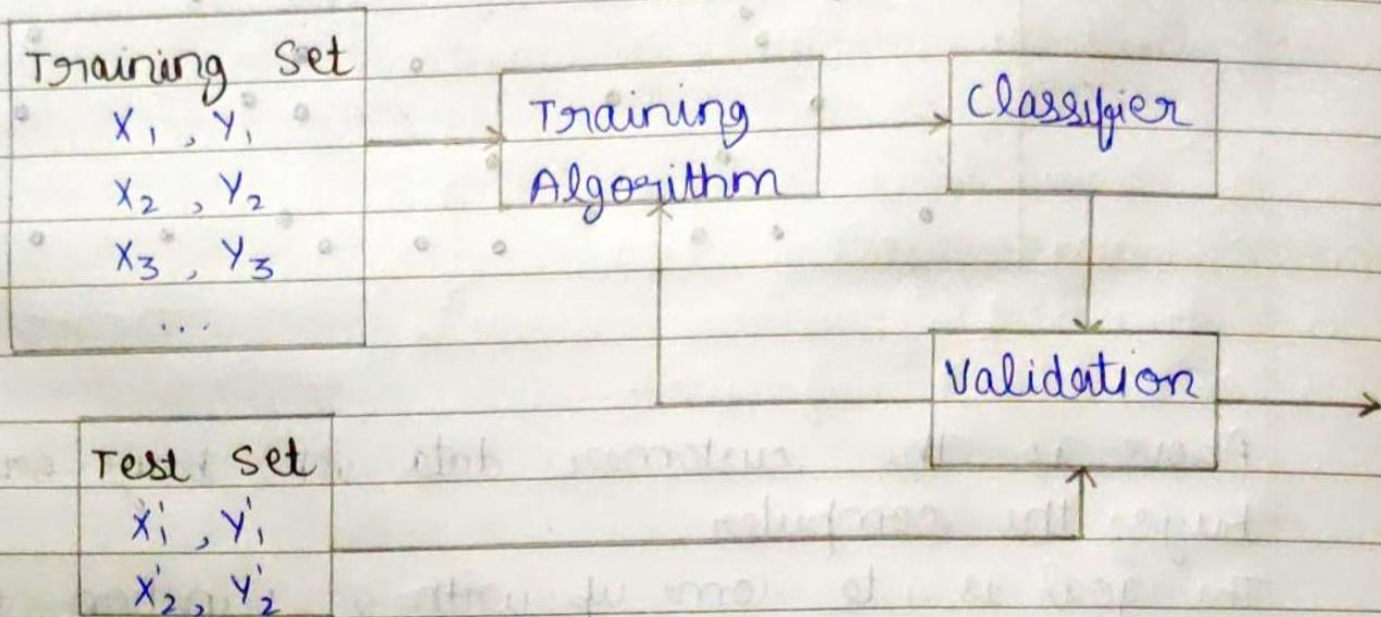 Training Set
X1, Y1
X2, Y2
X3, Y3
...
Training
Algorithm
Classifier
Validation
Test Set
X'1, Y'1
X'2, Y'2